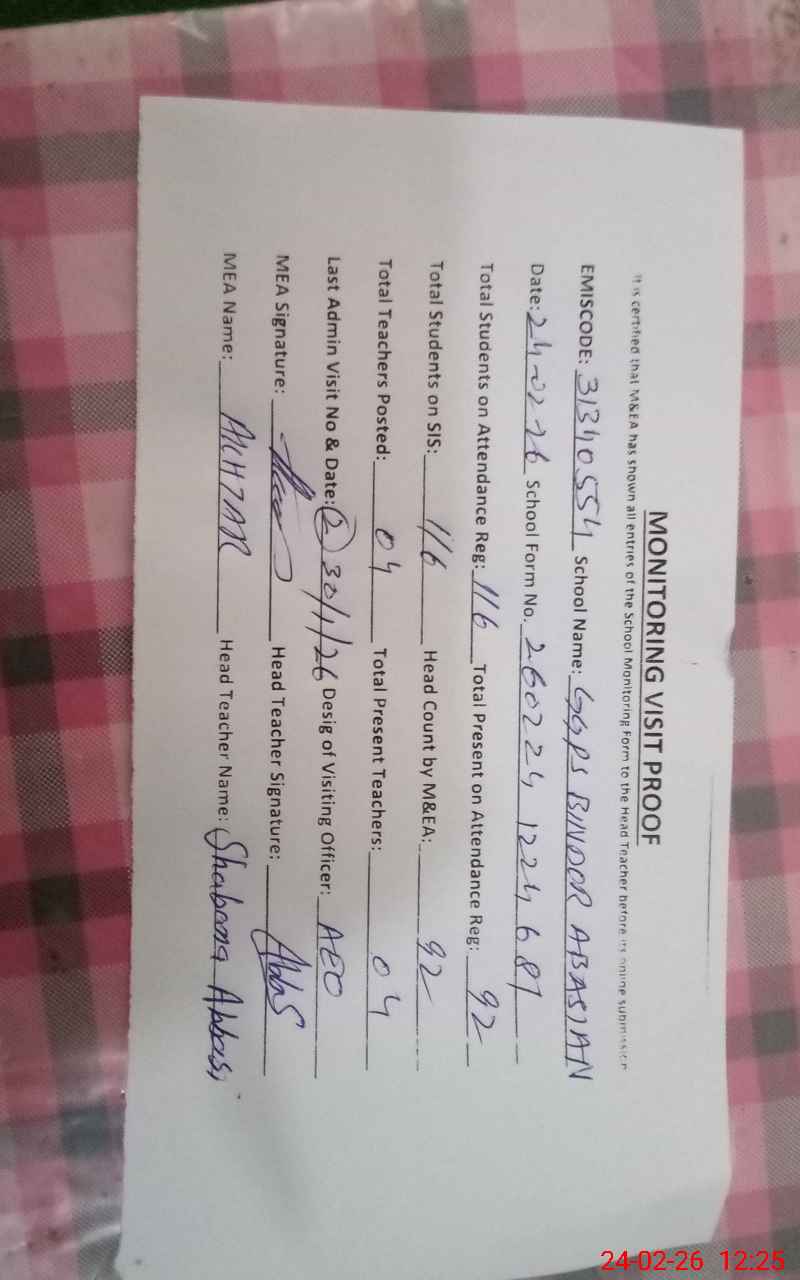 MONITORING VISIT PROOF
It is certified that M&EA has shown all entries of the School Monitoring Form to the Head Teacher before its online submission
EMISCODE: 31340554 School Name: GGPS BINDOR ABASIAN
Date: 24-02-26 School Form No. 260224 1224 681
Total Students on Attendance Reg: 116 Total Present on Attendance Reg: 92
Total Students on SIS: 116 Head Count by M&EA: 92
Total Teachers Posted: 04 Total Present Teachers: 04
Last Admin Visit No & Date: (2) 30/1/26 Desig of Visiting Officer: AEO
MEA Signature: Head Teacher Signature: Abbas
MEA Name: AKHTAR Head Teacher Name: Shabana Abbasi
24-02-26 12:25